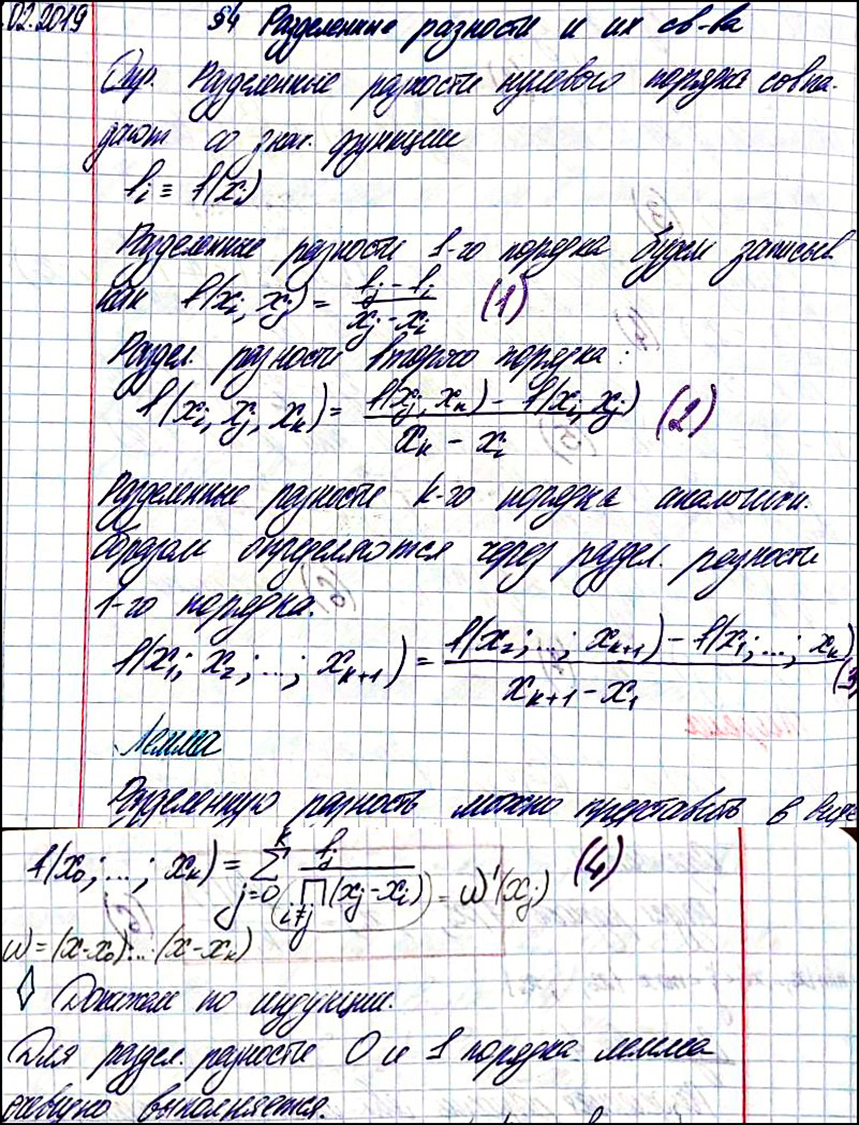 .02.2019 §4 Разделенные разности и их св-ва
Опр. Разделенные разности нулевого порядка совпа-
дают со знач. функции
f_i ≡ f(x_i)
Разделенные разности 1-го порядка будем записыв.
как f(x_i, x_j) = (f_j - f_i)/(x_j - x_i) (1)
Раздел. разности второго порядка:
f(x_i, x_j, x_k) = (f(x_j, x_k) - f(x_i, x_j))/(x_k - x_i) (2)
Разделенные разности k-го порядка аналогичн.
образом определяются через раздел. разности
1-го порядка.
f(x_1; x_2; ...; x_{k+1}) = (f(x_2; ...; x_{k+1}) - f(x_1; ...; x_k))/(x_{k+1} - x_1) (3
Лемма
Разделенную разность можно представить в виде
f(x_0; ...; x_k) = ∑_{j=0}^{k} f_j/∏_{i≠j}(x_j - x_i) = ω'(x_j) (4)
ω = (x-x_0)...(x-x_k)
◊ Докажем по индукции.
Для раздел. разности 0 и 1 порядка лемма
очевидно выполняется.